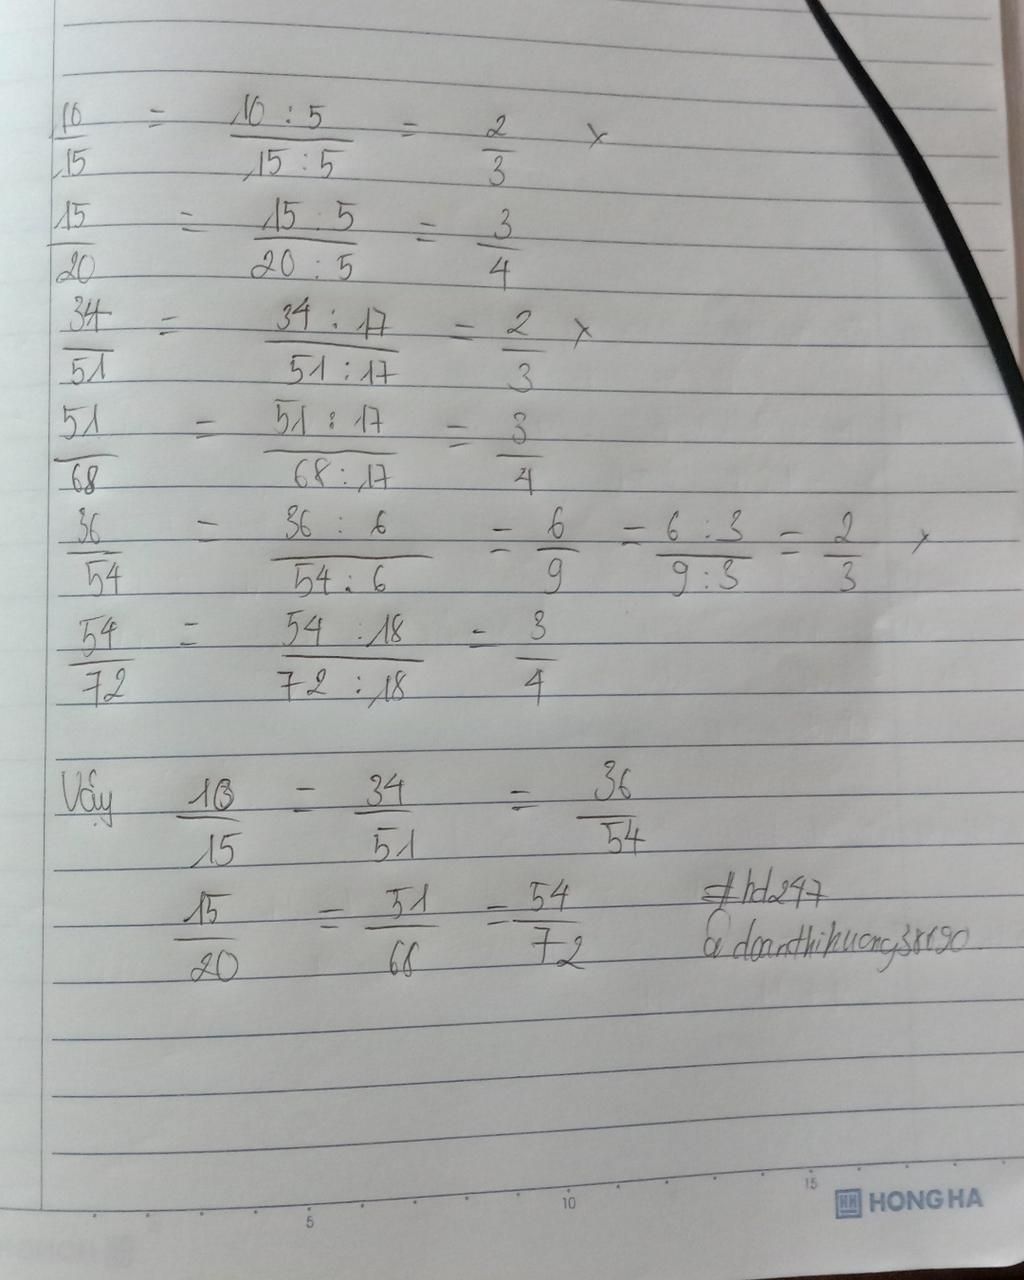 10/15 = 10 : 5 / 15 : 5 = 2/3 x
15/20 = 15 : 5 / 20 : 5 = 3/4
34/51 = 34 : 17 / 51 : 17 = 2/3 x
51/68 = 51 : 17 / 68 : 17 = 3/4
36/54 = 36 : 6 / 54 : 6 = 6/9 = 6 : 3 / 9 : 3 = 2/3 x
54/72 = 54 : 18 / 72 : 18 = 3/4
Vậy 10/15 = 34/51 = 36/54
15/20 = 51/68 = 54/72
#hd247
5 10 15
HONG HA